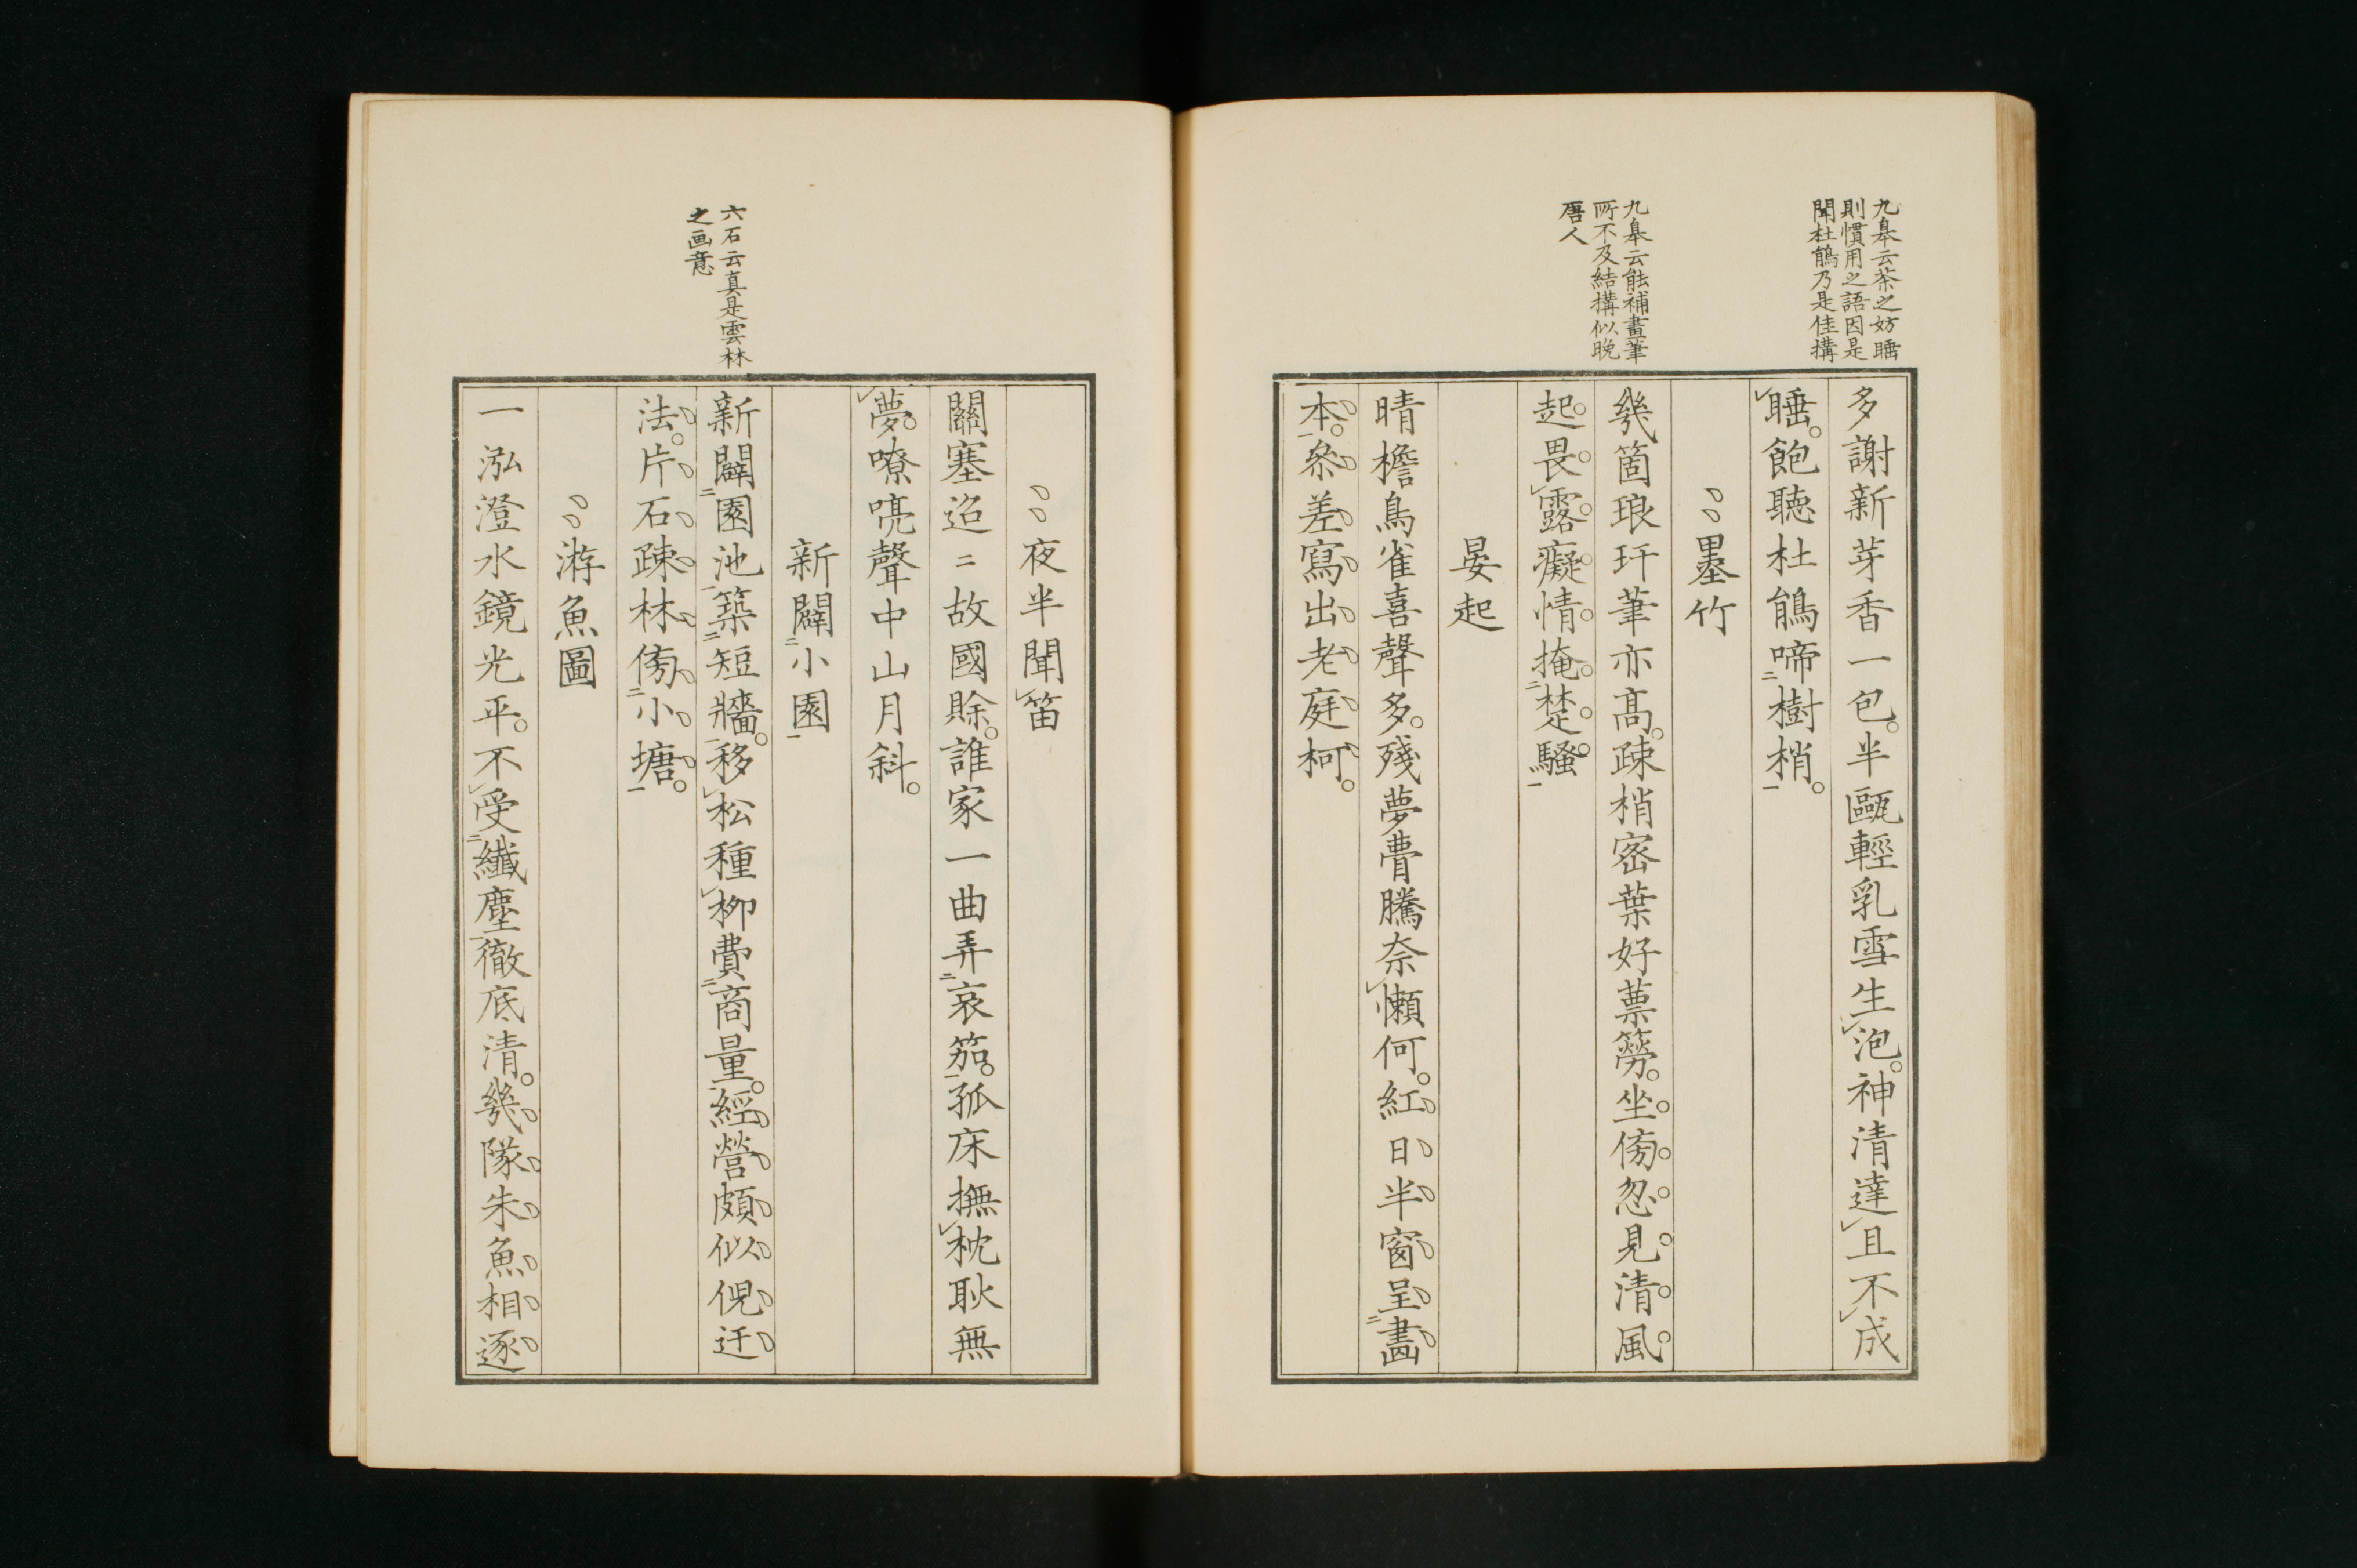 九皋云茶之妨睡
則慣用之語因是
聞杜鵑乃是佳搆
九皋云能補畫筆
所不及結搆似晚
唐人
多謝新芽香一包。半甌輕乳雪生泡。神清達且不成
睡。飽聽杜鵑啼樹梢。
墨竹
幾箇琅玕筆亦高。疎梢密葉好
起畏露癡情掩楚騷
晏起
晴檐鳥雀喜聲多。殘夢瞢騰奈懶何。紅日半窗呈畵
本。參差寫出老庭柯。
夜半聞笛
關塞迢〻故國賖。誰家一曲弄哀笳。孤床撫枕耿無
夢。嘹喨聲中山月斜。
六石云真是雲林
之画意
新闢小園
新闢園池築短牆。移松種柳費商量。經營頗似倪迂
法。片石疎林傍小塘。
游魚圖
一泓澄水鏡光平。不受纖塵徹底清。幾隊朱魚相逐